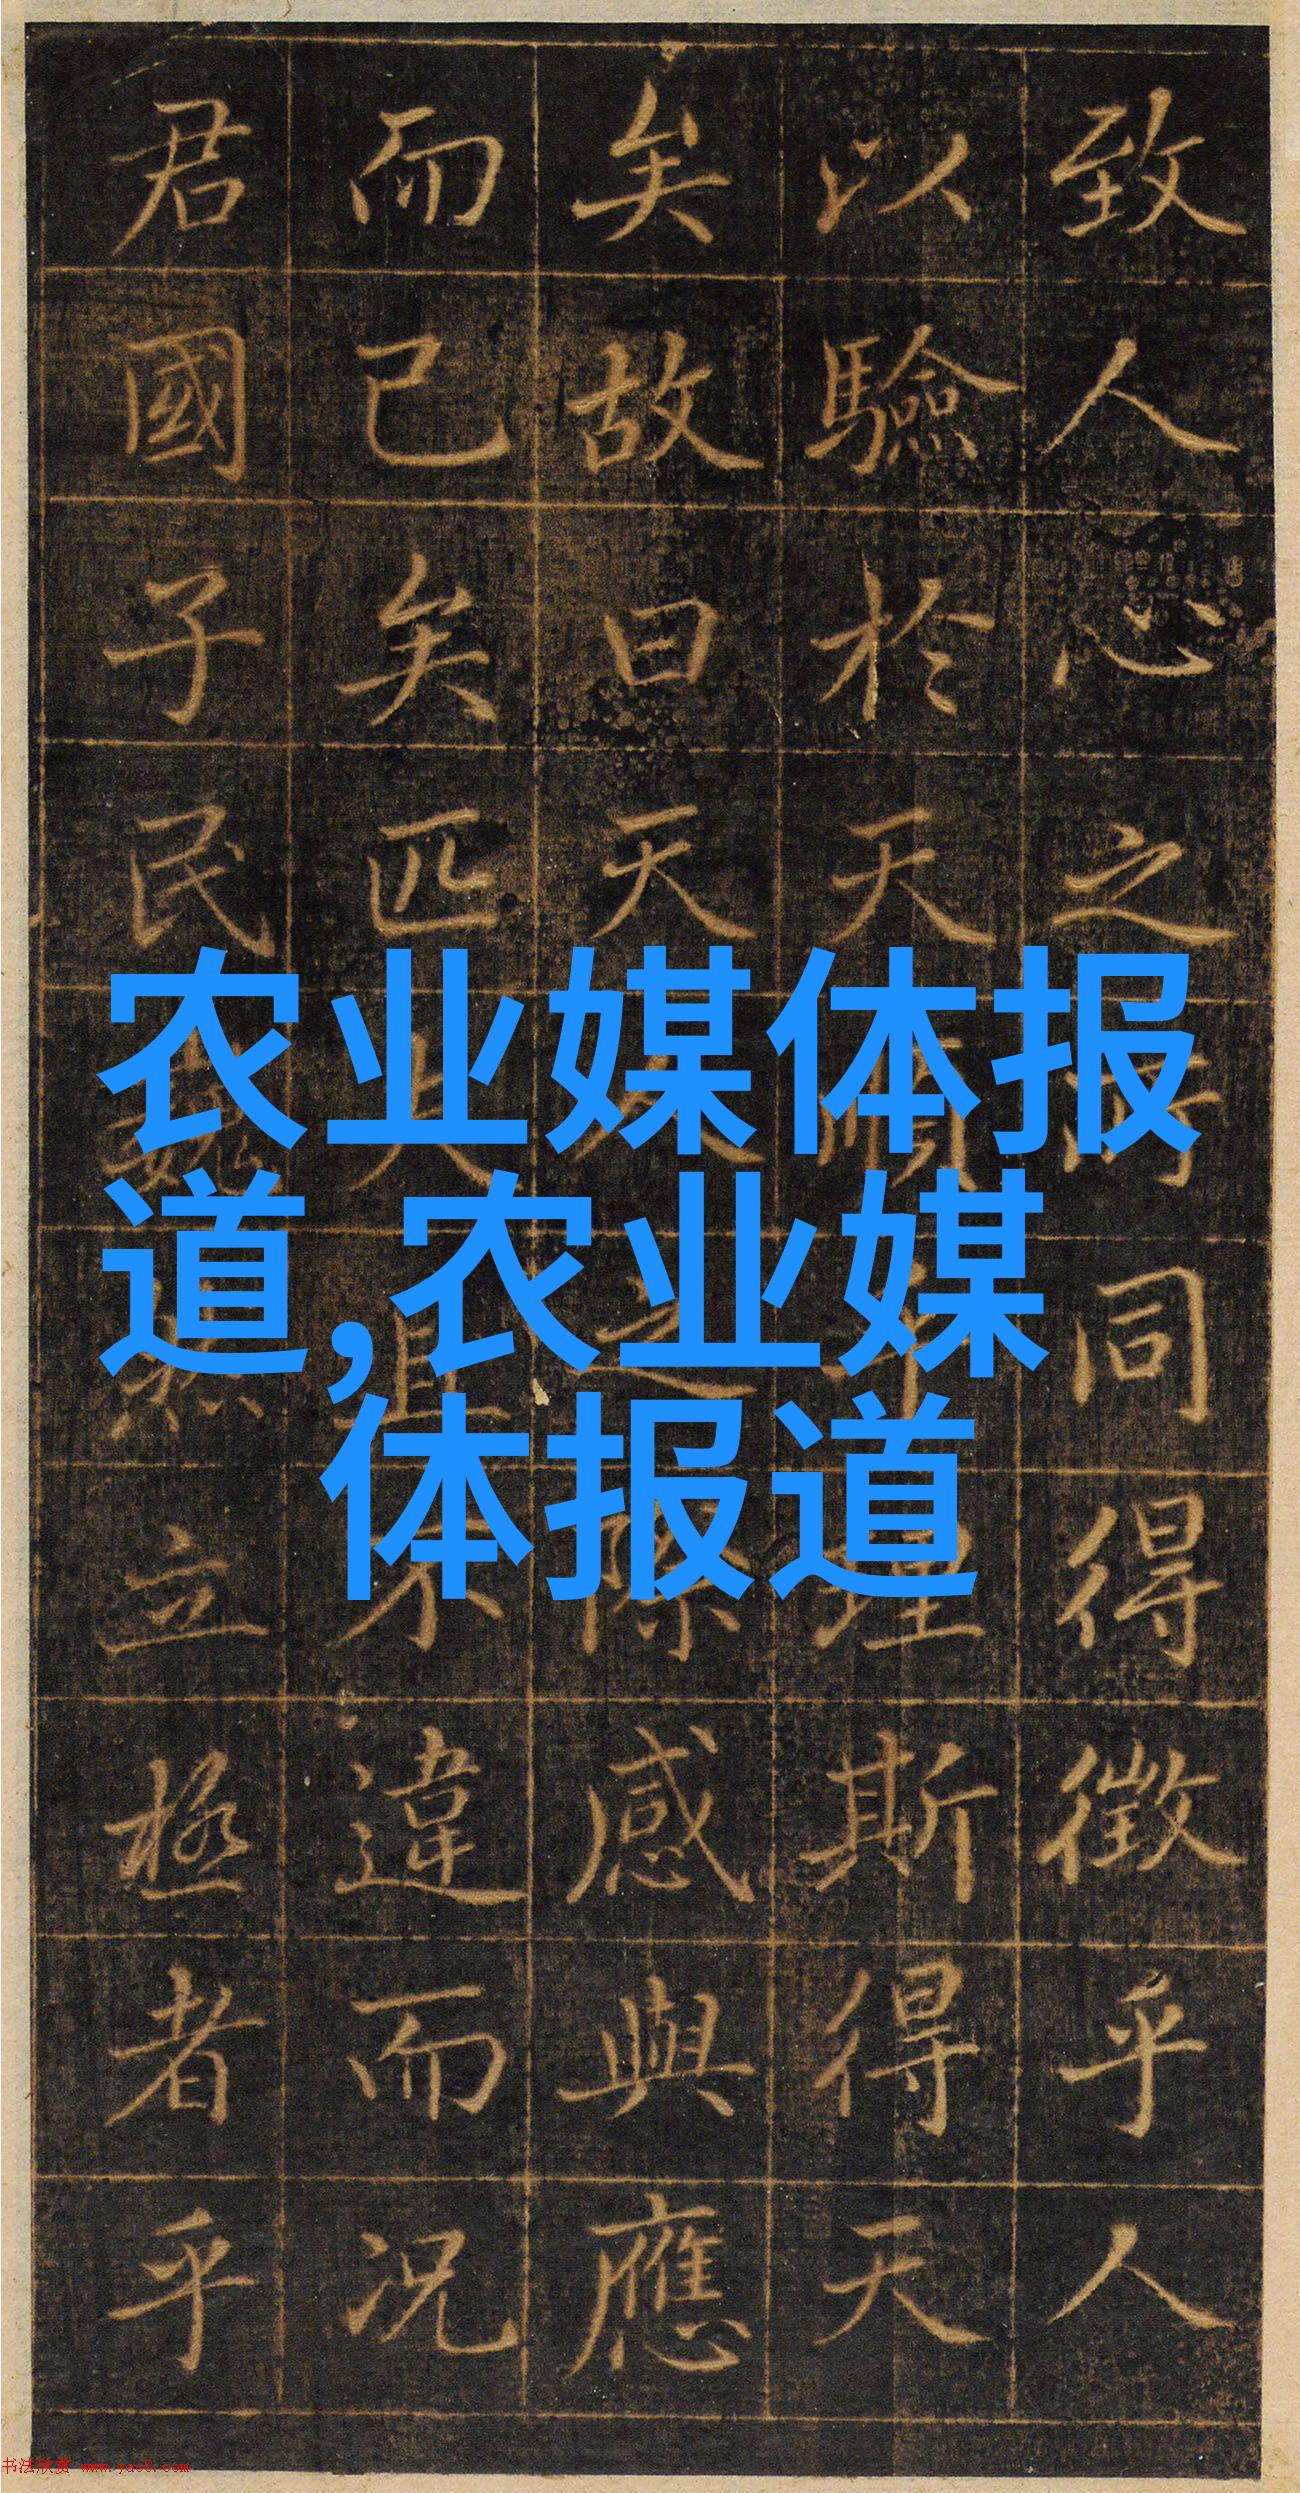 农业媒体报
道,农业媒
体报道
致人心之同得徵乎人
以驗於天順理斯得天
矣故曰天人之際感與應
而已矣匹夫且不違而況
君國子民巍然立極者乎
书法欣赏 www.yac8.com